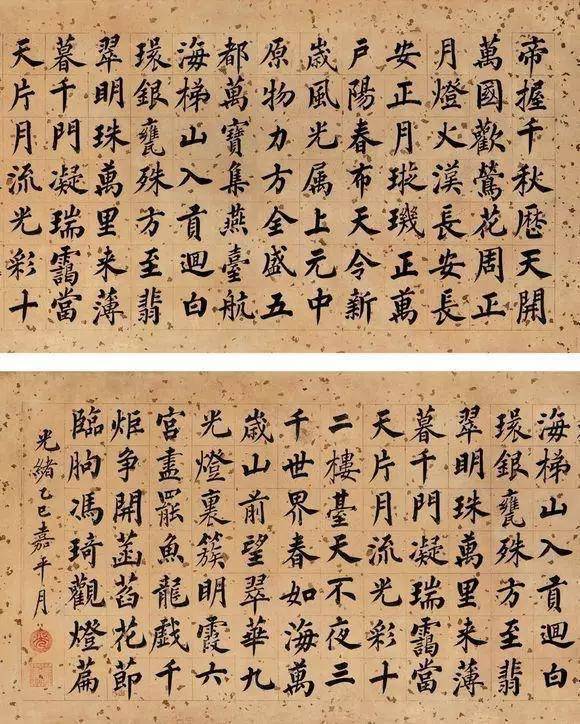 帝握千秋歴天開
萬國歡鶯花周正
月燈火漢長安長
安正月璇璣正萬
戶陽春布天令新
歲風光属上元中
原物力方全盛五
都萬寶集燕臺航
海梯山入貢迴白
環銀甕殊方至翡
翠明珠萬里来薄
暮千門凝瑞靄當
天片月流光彩十
海梯山入貢迴白
環銀甕殊方至翡
翠明珠萬里来薄
暮千門凝瑞靄當
天片月流光彩十
二樓臺天不夜三
千世界春如海萬
歲山前望翠華九
光燈裏簇明霞六
宮盡罷魚龍戲千
炬争開菡萏花節
臨朐馮琦觀燈篇
光緒乙巳嘉平月